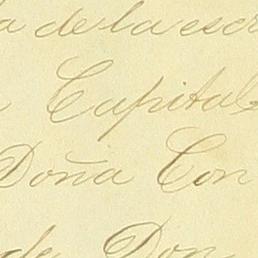 de la escr
Capital
Doña Con
de Don